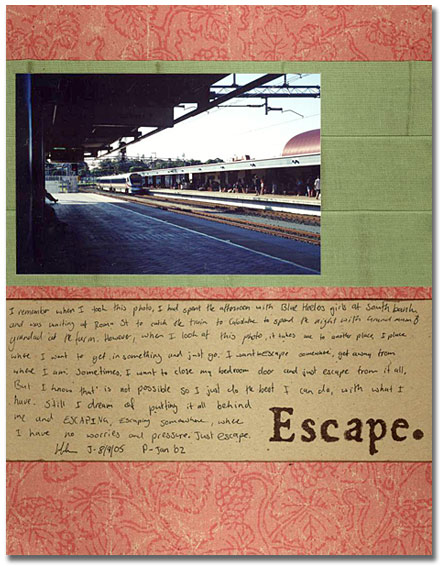 I remember when I took this photo, I had spent the afternoon with Blue Haelos girls at South bank,
and was waiting at Roma St to catch the train to Caboolture to spend the night with Grandmama &
grandad at the farm. However, when I look at this photo, it takes me to another place. A place
where I want to get in something and just go. I want escape somewhere, get away from
where I am. Sometimes, I want to close my bedroom door and just escape from it all.
But I know that is not possible so I just do the best I can do, with what I
have. Still I dream of putting it all behind
me and ESCAPING, escaping somewhere, where
I have no worries and pressure. Just escape.
J-8/9/05 P-Jan 02
Escape.